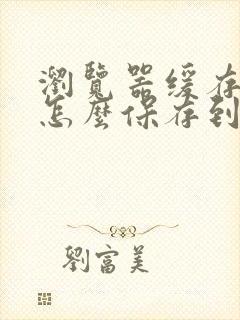 瀏覽器緩存
怎麼保存到
劉富美